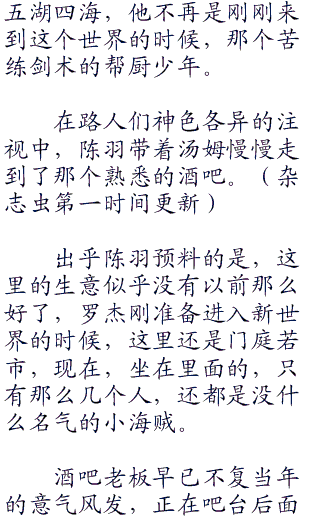 五湖四海，他不再是刚刚来
到这个世界的时候，那个苦
练剑术的帮厨少年。
在路人们神色各异的注
视中，陈羽带着汤姆慢慢走
到了那个熟悉的酒吧。（杂
志虫第一时间更新）
出乎陈羽预料的是，这
里的生意似乎没有以前那么
好了，罗杰刚准备进入新世
界的时候，这里还是门庭若
市，现在，坐在里面的，只
有那么几个人，还都是没什
么名气的小海贼。
酒吧老板早已不复当年
的意气风发，正在吧台后面